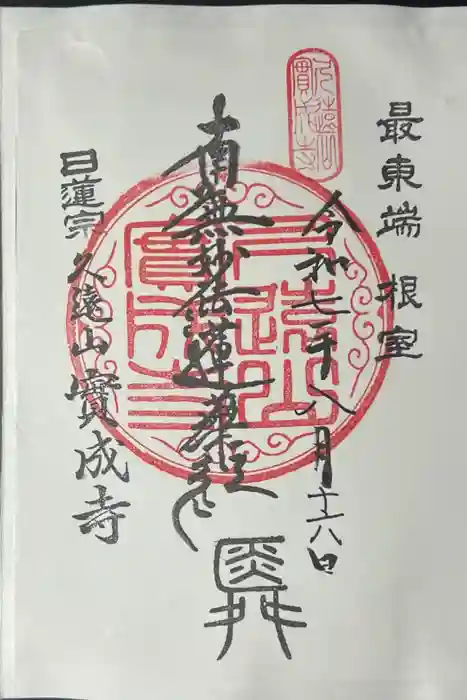 最東端 根室
令和七年八月十六日
南無妙法蓮華経
日蓮宗 久遠山 實成寺
久遠山
實成寺